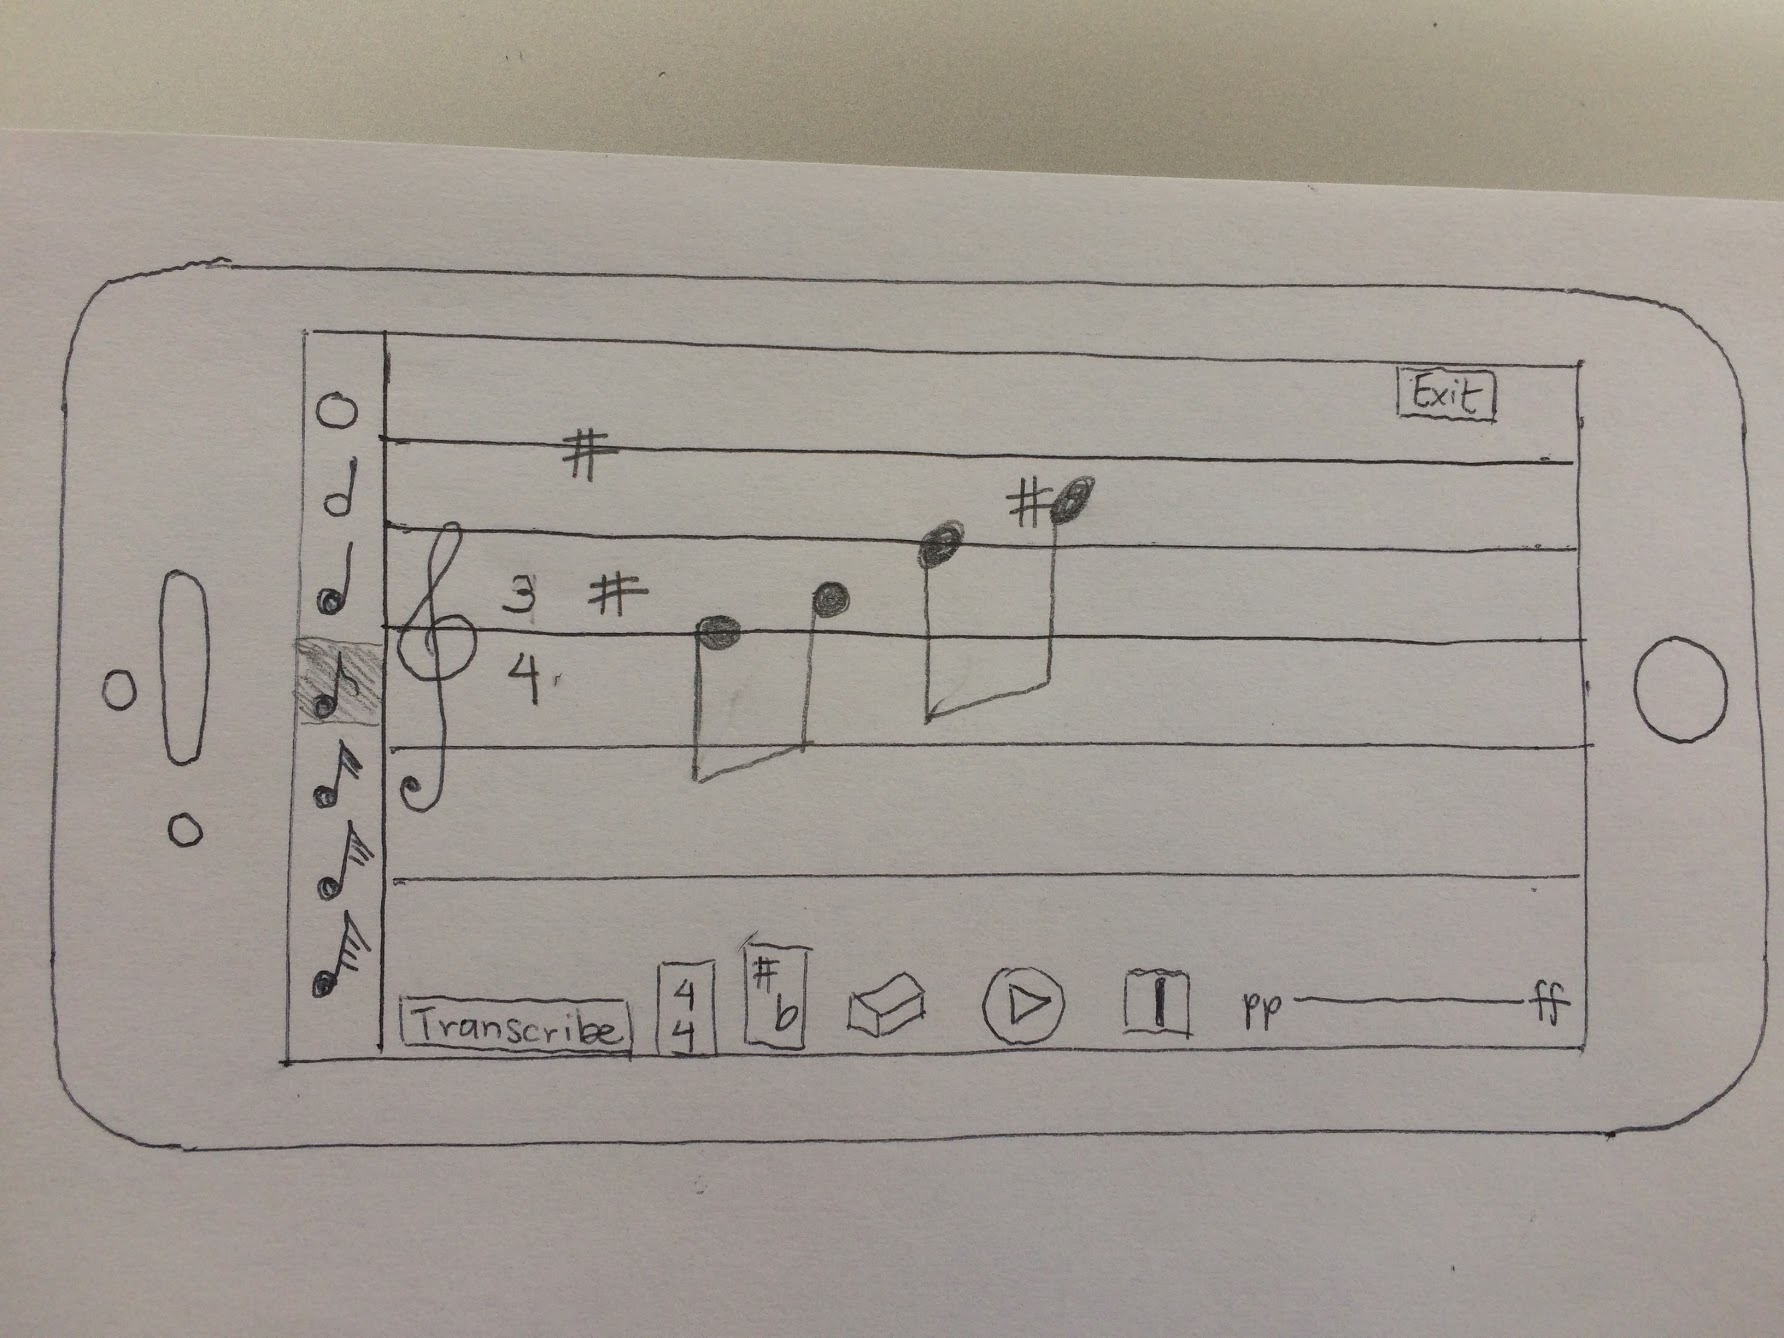 Exit
#
#
3 #
4
Transcribe
4
4
#
b
pp
ff